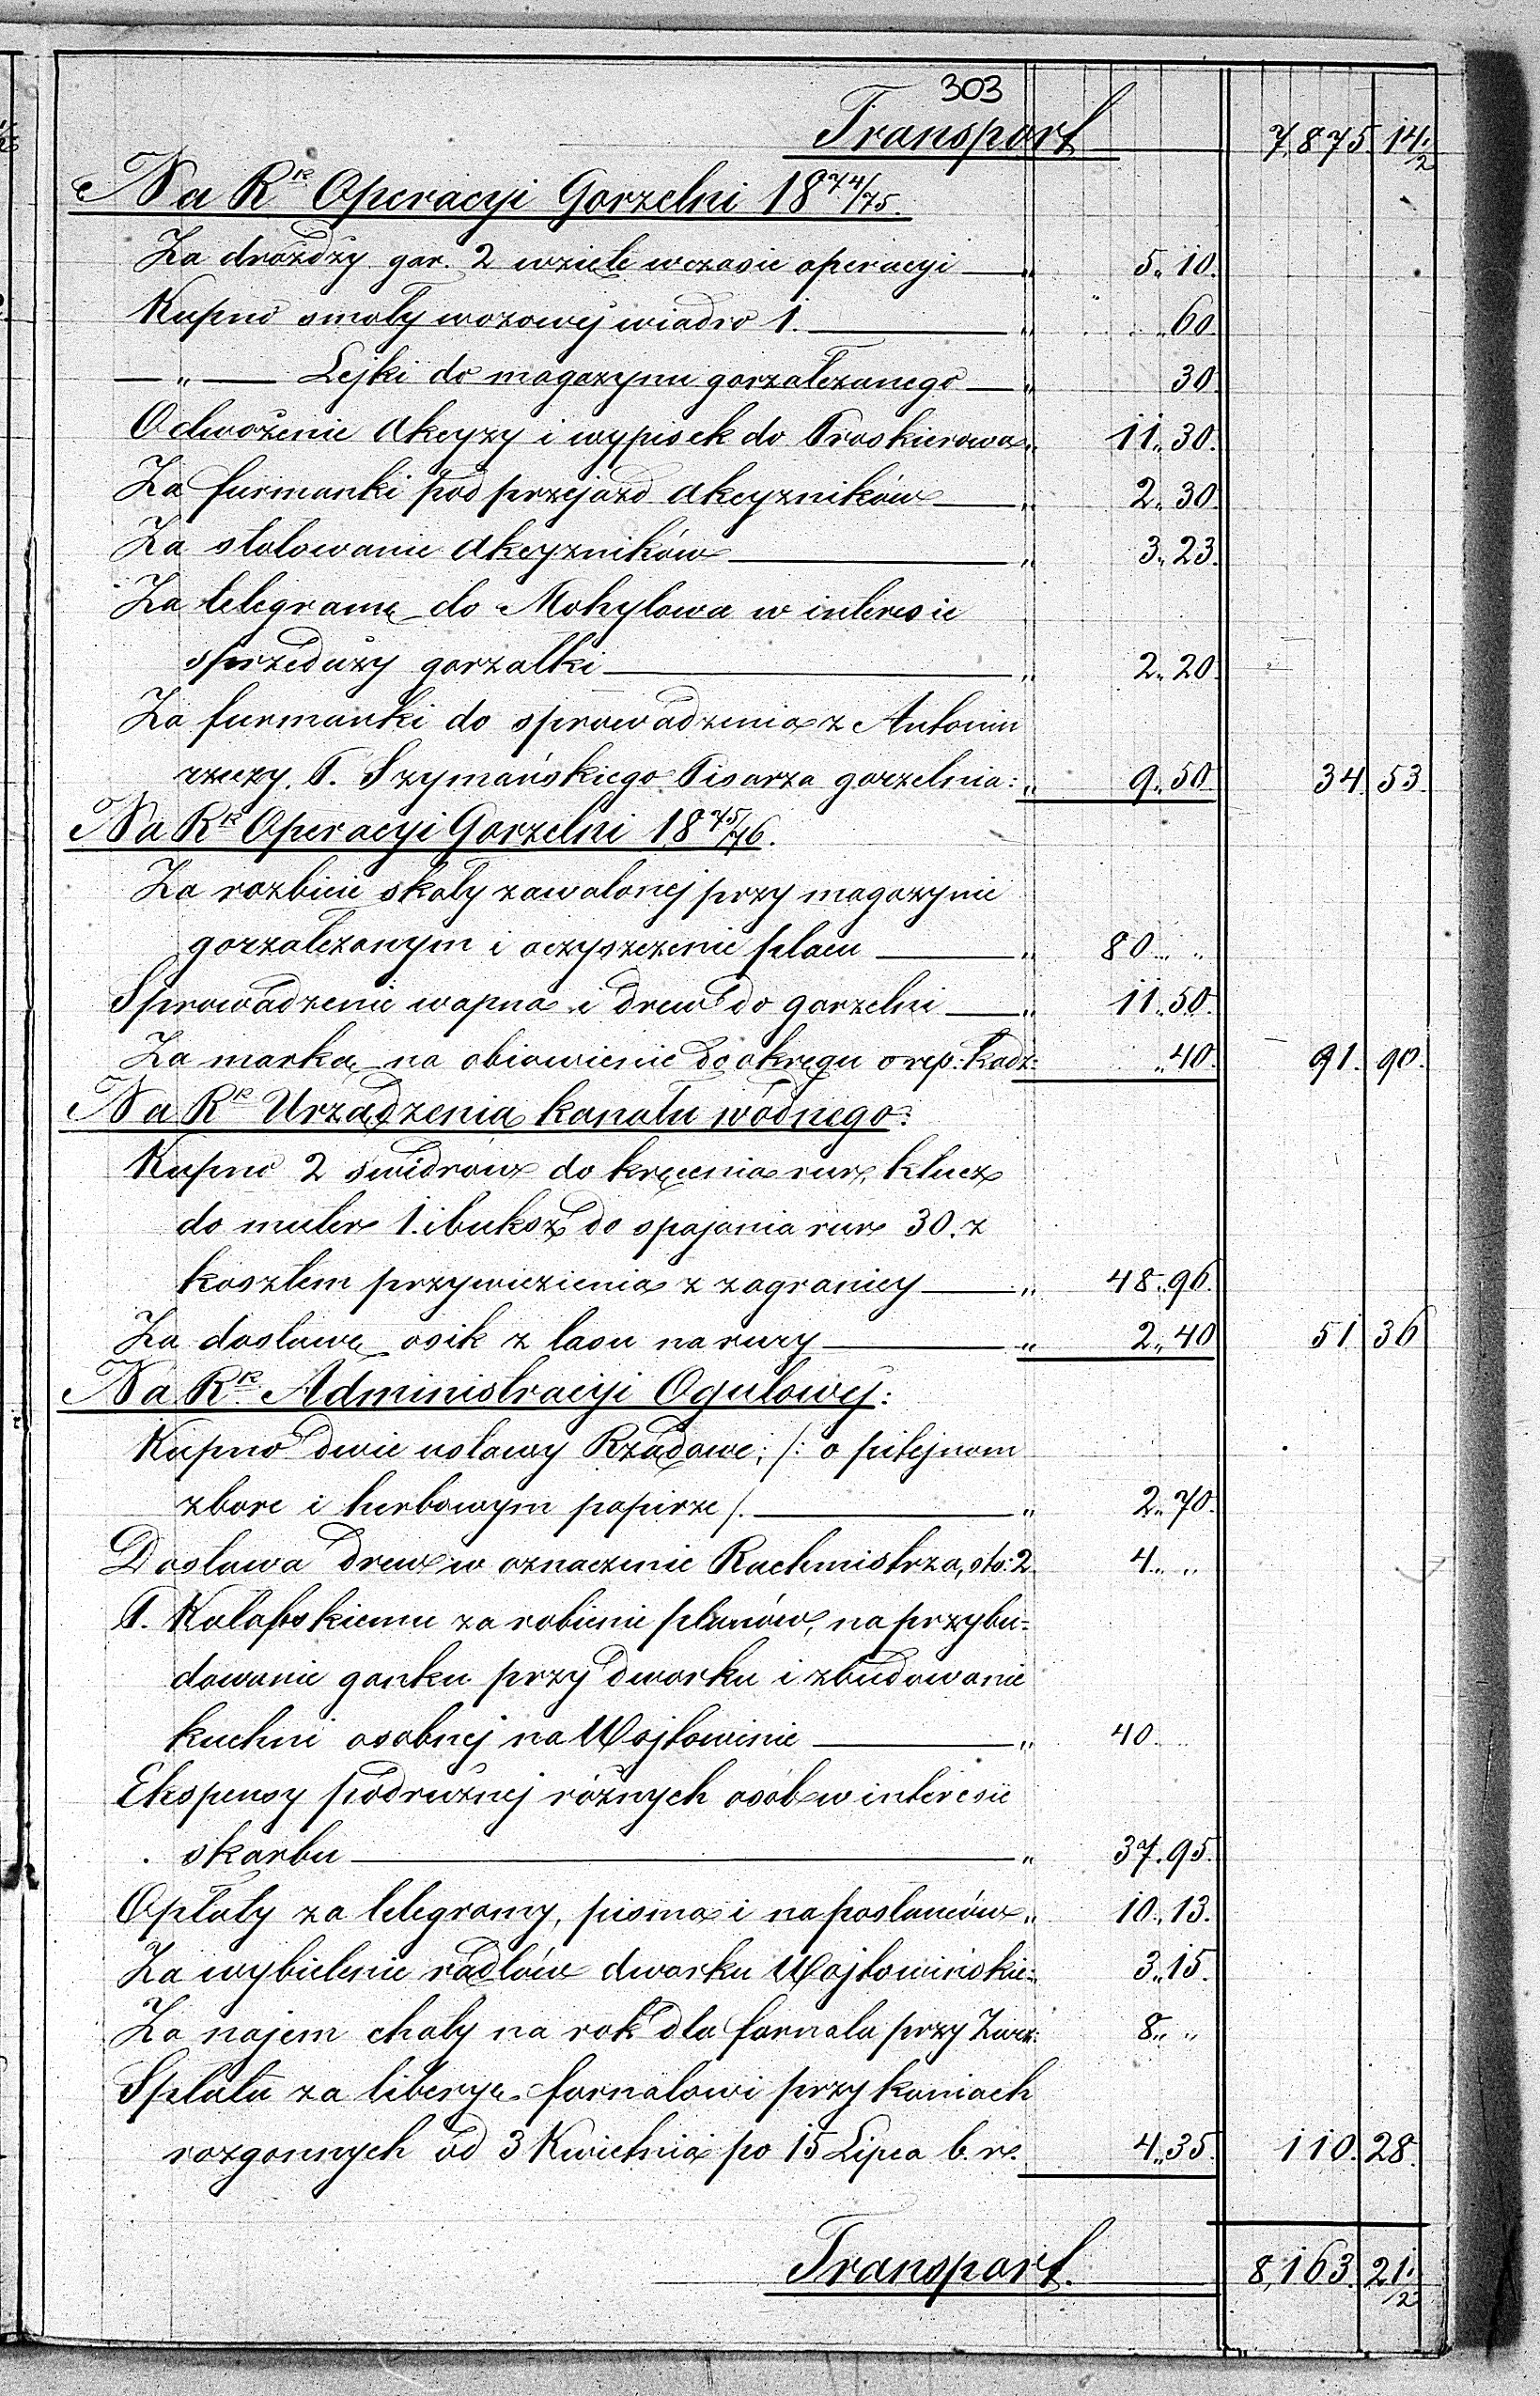 303
Transport 7,875. 14 1/2
Na Rk Operacyi Gorzelni 18 74/75.
Za drożdży gar. 2 wzięte wczasie operacyi — „ 5„ 10.
Kupno smoły wozowéj wiadro 1. — „ „ 60
— „ — Lejki do magazynu gorzałczanego — „ 30
Odwożenie Akcyzy i wypisek do Proskierowa „ 11„ 30.
Za furmanki pod przejazd Akcyzników — „ 2„ 30.
Za stołowanie Akcyzników — „ 3„ 23.
Za telegramę do Mohylowa w interesie
sprzedaży gorzałki — „ 2„ 20
Za furmanki do sprowadzenia z Antonin
rzeczy P. Szymańskiego Pisarza gorzelnia: „ 9„ 50. 34. 53.
Na Rk Operacyi Gorzelni 18 75/76.
Za rozbicie skały zawalonej przy magazynie
gorzałczanym i oczyszczenie placu — „ 80 „ „
Sprowadzenie wapna i drew do gorzelni — „ 11„ 50.
Za markę na obiawienie do okręgu o rep: Kadz: „ 40. 91. 90.
Na Rk Urządzenia kanału wódnego:
Kupno 2 swidrów do kręcenia rur, klucz
do muter 1. i buksz do spajania rur 30. z
kosztem przywiezienia z zagranicy — „ 48„ 96.
Za dostawę osik z lasu na rury — „ 2„ 40 51 36
Na Rk Administracyi Ogulowéj:
Kupno dwie ustawy Rządowe; /: o pitejnom
zbore i herbowym papirze /. — „ 2„ 70.
Dostawa drew w oznaczenie Rachmistrza, sto: 2 4„ „
P. Kołabskiemu za robienie planów, na przybu-
dowanie ganku przy dworku i zbudowanie
kuchni osobnej na Wojtowinie — „ 40 „
Ekspensy pódrużnej różnych osób w interesie
skarbu — „ 37. 95.
Opłaty za telegramy, pisma i na posłańców „ 10„ 13.
Za wybielenie rądlów dworku Wojtowińskie: 3„ 15.
Za najem chaty na rok dla fornala przy Zwz: 8„ „
Spłata za liberye fornalowi przy koniach
rozgonnych od 3 Kwietnia po 15 Lipca b. r. 4„ 35. 110. 28.
Transport. 8,163. 21 1/2